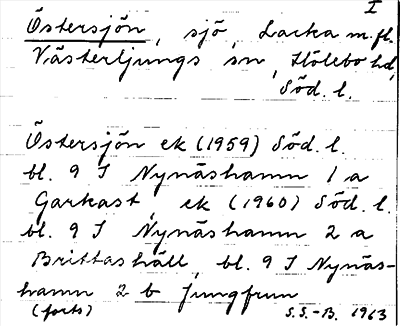 I
Östersjön, sjö, Lacka m. fl.
Västerljungs sn, Hölebo hd,
Söd. l.
Östersjön ek (1959) Söd. l.
bl. 9 I Nynäshamn 1 a
Garkast, ek (1960) Söd. l.
bl. 9 I Nynäshamn 2 a
Brittashäll, bl. 9 I Nynäs-
hamn 2 b Jungfrun
(forts) S.S.-B. 1963